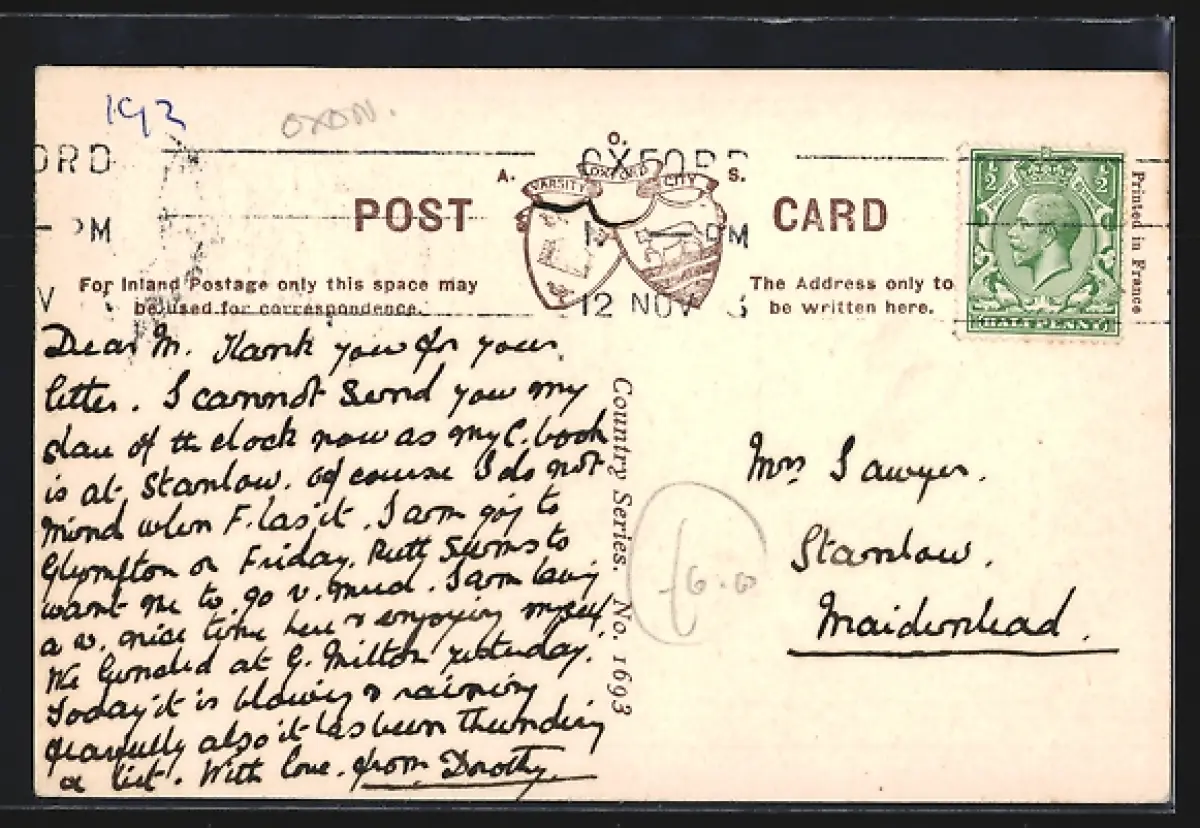 193
OXON.
ORD
OXFORD
A. O. S.
VARSITY OXFORD CITY
POST CARD
PM
PM
12 NOV 3
½ ½
HALFPENNY
Printed in France
For Inland Postage only this space may
be used for correspondence.
The Address only to
be written here.
Dear M. Thank you for your
letter. I cannot send you my
of the clock now as my C. book
is at Stanlow. Of course I do not
mind when F. has it. I am going to
Glympton on Friday. Ruth seems to
want me to go v. much. I am having
a v. nice time here & enjoying myself.
We lunched at G. Milton yesterday.
Today it is blowing & raining
fearfully also it has been thundering
a bit. With love. from Dorothy.
Country Series. No. 1693
£6.00
Mrs Sawyer.
Stanlow.
Maidenhead.